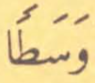 وَسَطًَا